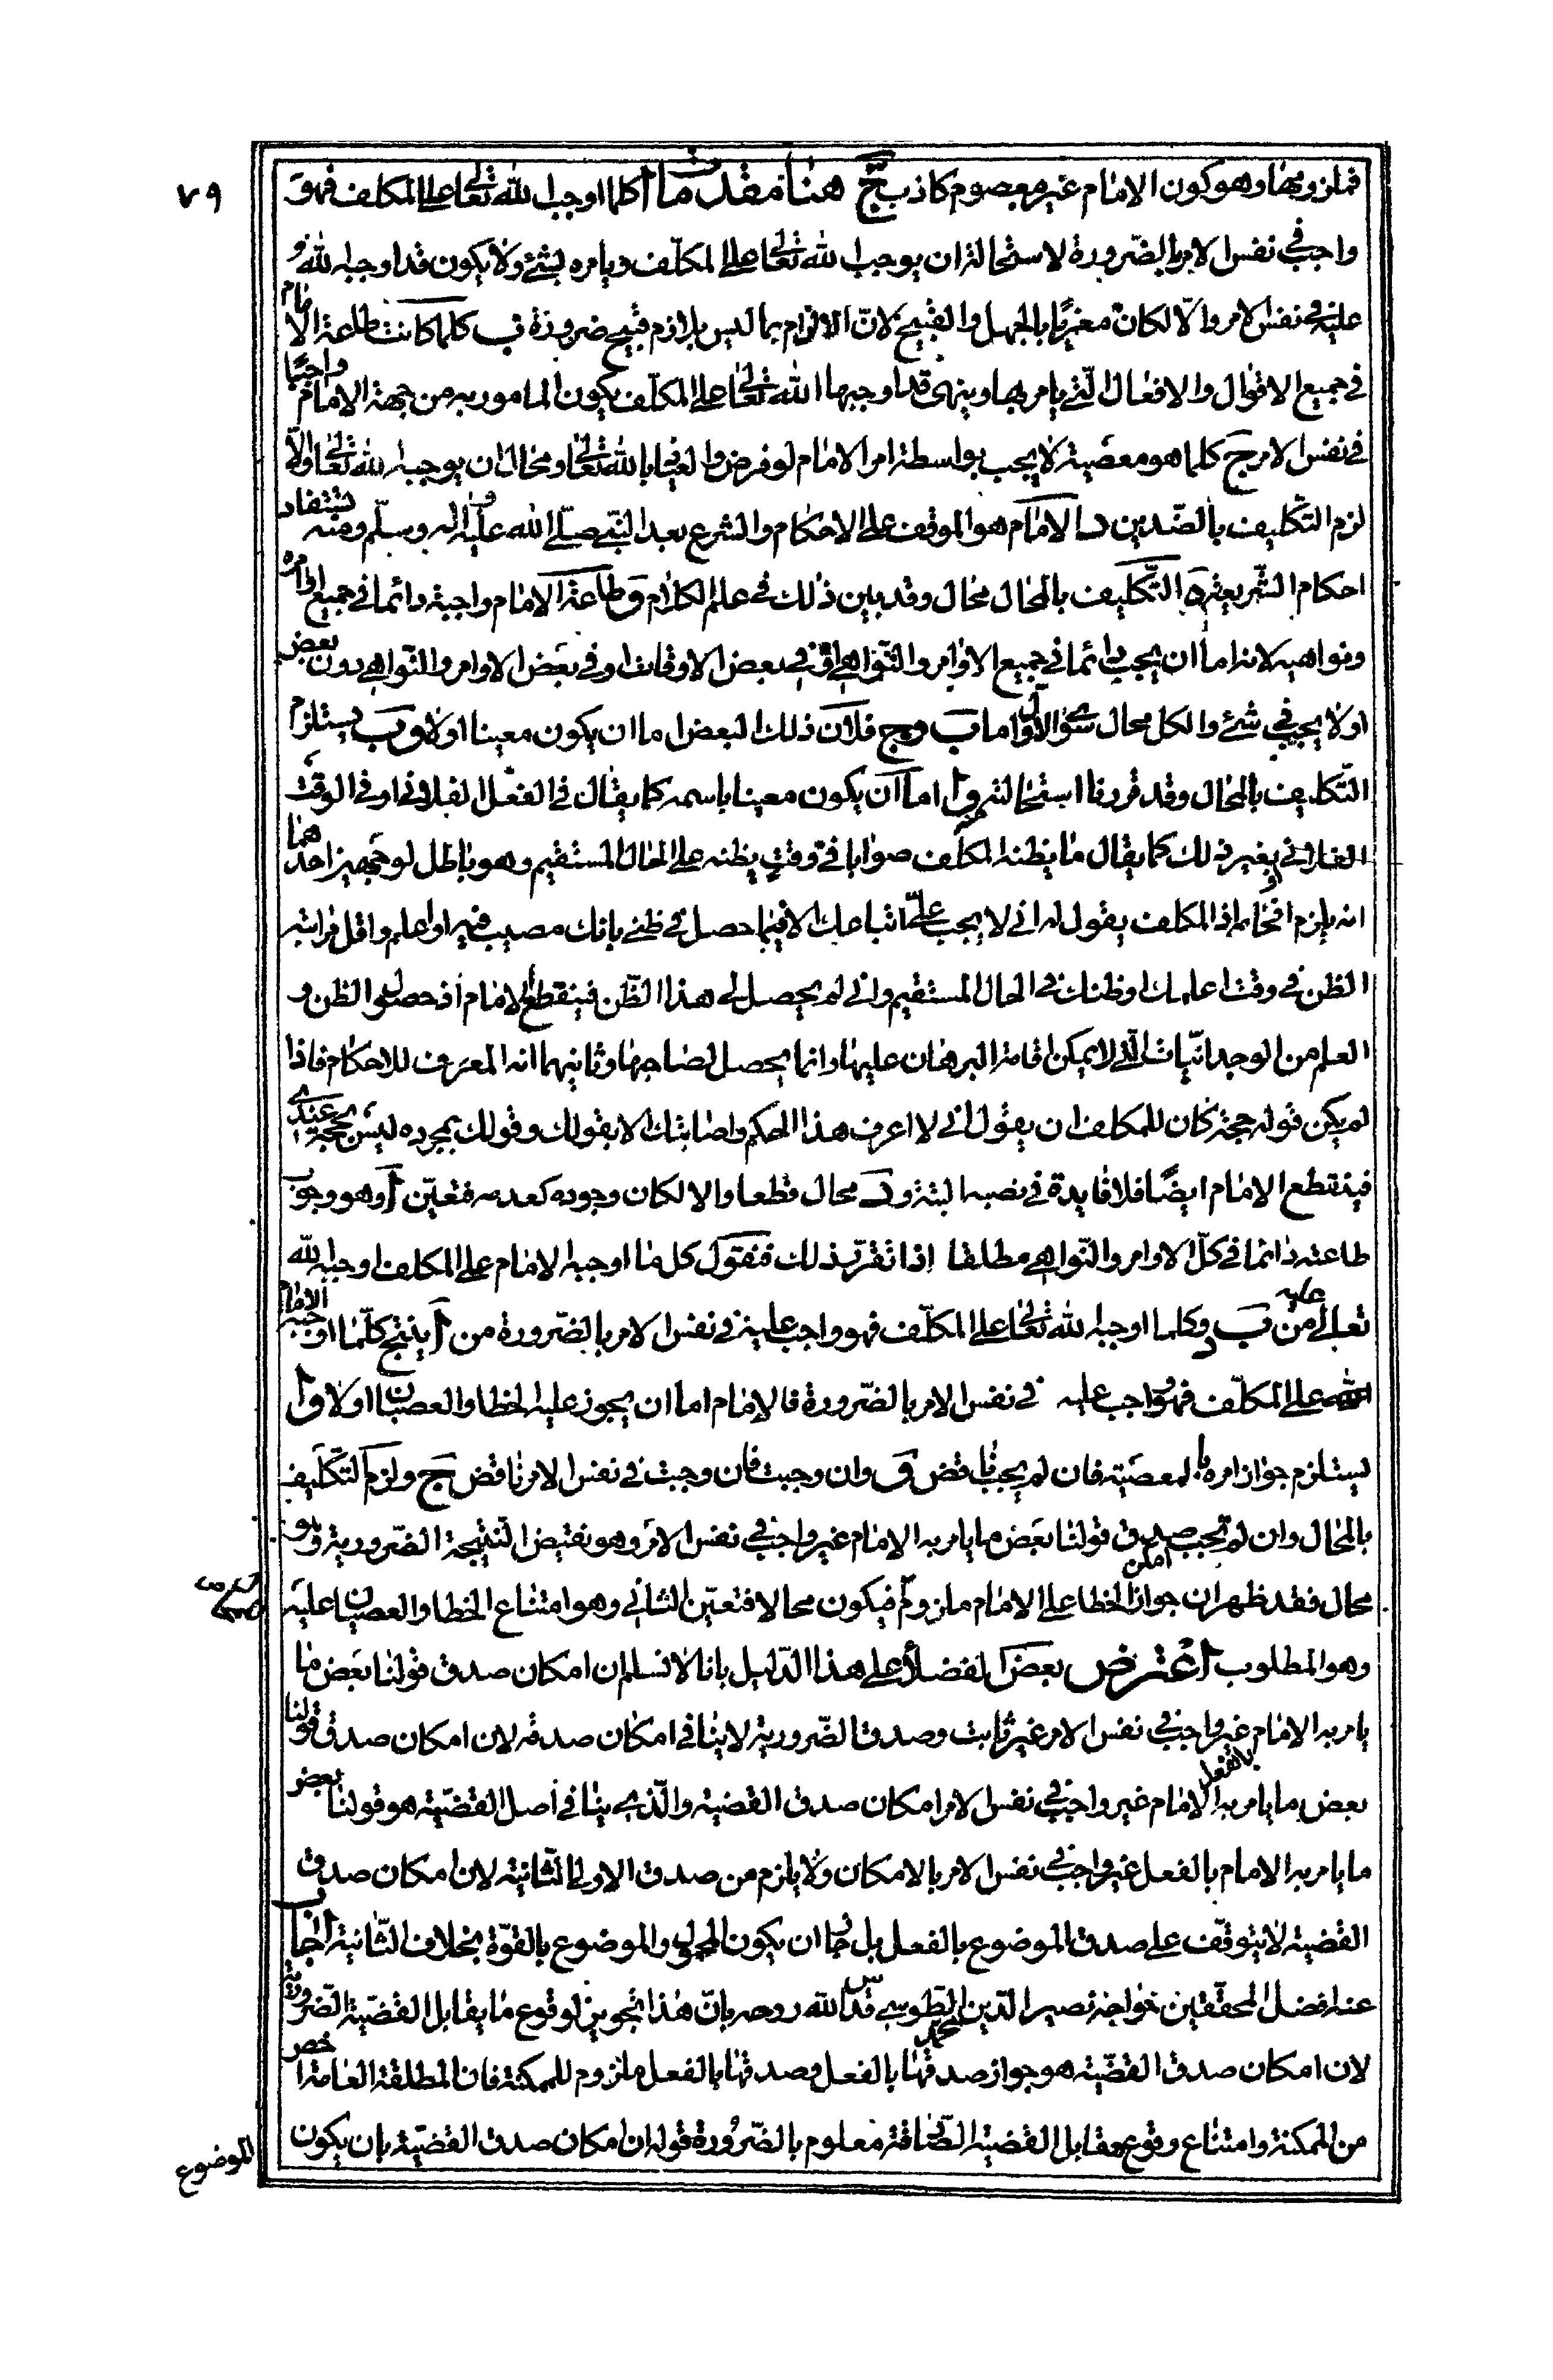 ٧٩
فملزومها وهو كون الامام غير معصوم كاذب حج هنا مقدمات آ كلما اوجب الله تعالى على المكلف فهو
واجب في نفس الامر بالضرورة لاستحالة ان يوجب الله تعالى على المكلف ويامره بشئ ولا يكون قد اوجبه الله
عليه في نفس الامر والا لكان مغريا بالجهل والقبيح لان الالزام بما ليس بلازم قبيح ضرورة ب كلما كانت طاعة الامام
في جميع الاقوال والافعال التي يامر بها وينهى قد اوجبها الله تعالى على المكلف يكون المامور به من جهة الامام واجبا
في نفس الامر ج كلما هو معصية لا يجب بواسطة امر الامام لو فرض والعياذ بالله تعالى ومحال ان يوجبه الله تعالى والا
لزم التكليف بالضدين د الامام هو الموقف على الاحكام والشرع بعد النبي صلى الله عليه واله وسلم ومنه تستفاد
احكام الشريعة ه التكليف بالمحال محال وقد بين ذلك في علم الكلام و طاعة الامام واجبة دائما في جميع اوامره
ونواهيه لانه اما ان يجب دائما في جميع الاوامر والنواهي او في بعض الاوقات او في بعض الاوامر والنواهي دون بعض
او لا يجب في شئ والكل محال سوى الاول اما ب وج فلان ذلك البعض اما ان يكون معينا اولا وب يستلزم
التكليف بالمحال وقد قررنا استحالته وآ اما ان يكون معينا باسمه كما يقال في الفعل الفلاني او في الوقت
الفلاني او بغير ذلك كما يقال ما يظنه المكلف صوابا في وقت يظنه على الحال المستقيم وهو باطل لوجهين احدهما
انه يلزم افحامه اذ المكلف يقول له اني لا يجب علي اتباعك الا فيما حصل في ظني بانك مصيب فيه او اعلم واقل مراتبه
الظن في وقت اعلمك او ظنك في الحال المستقيم واني لم يحصل لي هذا الظن فينقطع الامام اذ حصول الظن و
العلم من الوجدانيات التي لا يمكن اقامة البرهان عليها وانما يحصل لصاحبها وثانيهما انه المعرف للاحكام فاذا
لم يكن قوله حجة كان للمكلف ان يقول اني لا اعرف هذا الحكم واصابتك الا بقولك وقولك بمجرده ليس بحجة عندي
فينقطع الامام ايضا فلا فايدة في نصبه البتة ود محال قطعا والا لكان وجوده كعدمه فتعين آ وهو وجوب
طاعته دائما في كل الاوامر والنواهي مطلقا اذا تقرر ذلك فنقول كل ما اوجبه الامام على المكلف اوجبه الله
تعالى عليه من ب وكلما اوجبه الله تعالى على المكلف فهو واجب عليه في نفس الامر بالضرورة من آ ينتج كلما اوجبه الامام
على المكلف فهو واجب عليه في نفس الامر بالضرورة فالامام اما ان يجوز عليه الخطا والعصيان اولا وآ
يستلزم جواز امره بالمعصية فان لم يجب ناقض و وان وجبت فان وجبت في نفس الامر ناقض ج ولزم التكليف
بالمحال وان لم تجب امكن صدق قولنا بعض ما يامر به الامام غير واجب في نفس الامر وهو نقيض النتيجة الضرورية وهو
محال فقد ظهر ان جواز الخطا على الامام ملزوم فيكون محالا فتعين الثاني وهو امتناع الخطا والعصيان عليه
وهو المطلوب اعترض بعض الفضلاء على هذا الدليل بانا لا نسلم ان امكان صدق قولنا بعض ما
يامر به الامام غير واجب في نفس الامر غير ثابت وصدق الضرورية لا ينافي امكان صدقه لان امكان صدق قولنا
بعض ما يامر به الامام بالفعل غير واجب في نفس الامر امكان صدق القضية والذي ينافي اصل القضية هو قولنا بعض
ما يامر به الامام بالفعل غير واجب في نفس الامر بالامكان ولا يلزم من صدق الاولى الثانية لان امكان صدق
القضية لا يتوقف على صدق الموضوع بالفعل بل جاز ان يكون المحمول والموضوع بالقوة بخلاف الثانية اجاب
عنه افضل المحققين خواجة نصير الدين محمد الطوسي قدس الله روحه بان هذا تجويز لوقوع ما يقابل القضية الضرورية
لان امكان صدق القضية هو جواز صدقها بالفعل وصدقها بالفعل ملزوم للممكنة فان المطلقة العامة اخص
من الممكنة وامتناع وقوع مقابل القضية الصادقة معلوم بالضرورة قوله ان امكان صدق القضية بان يكون
الموضوع